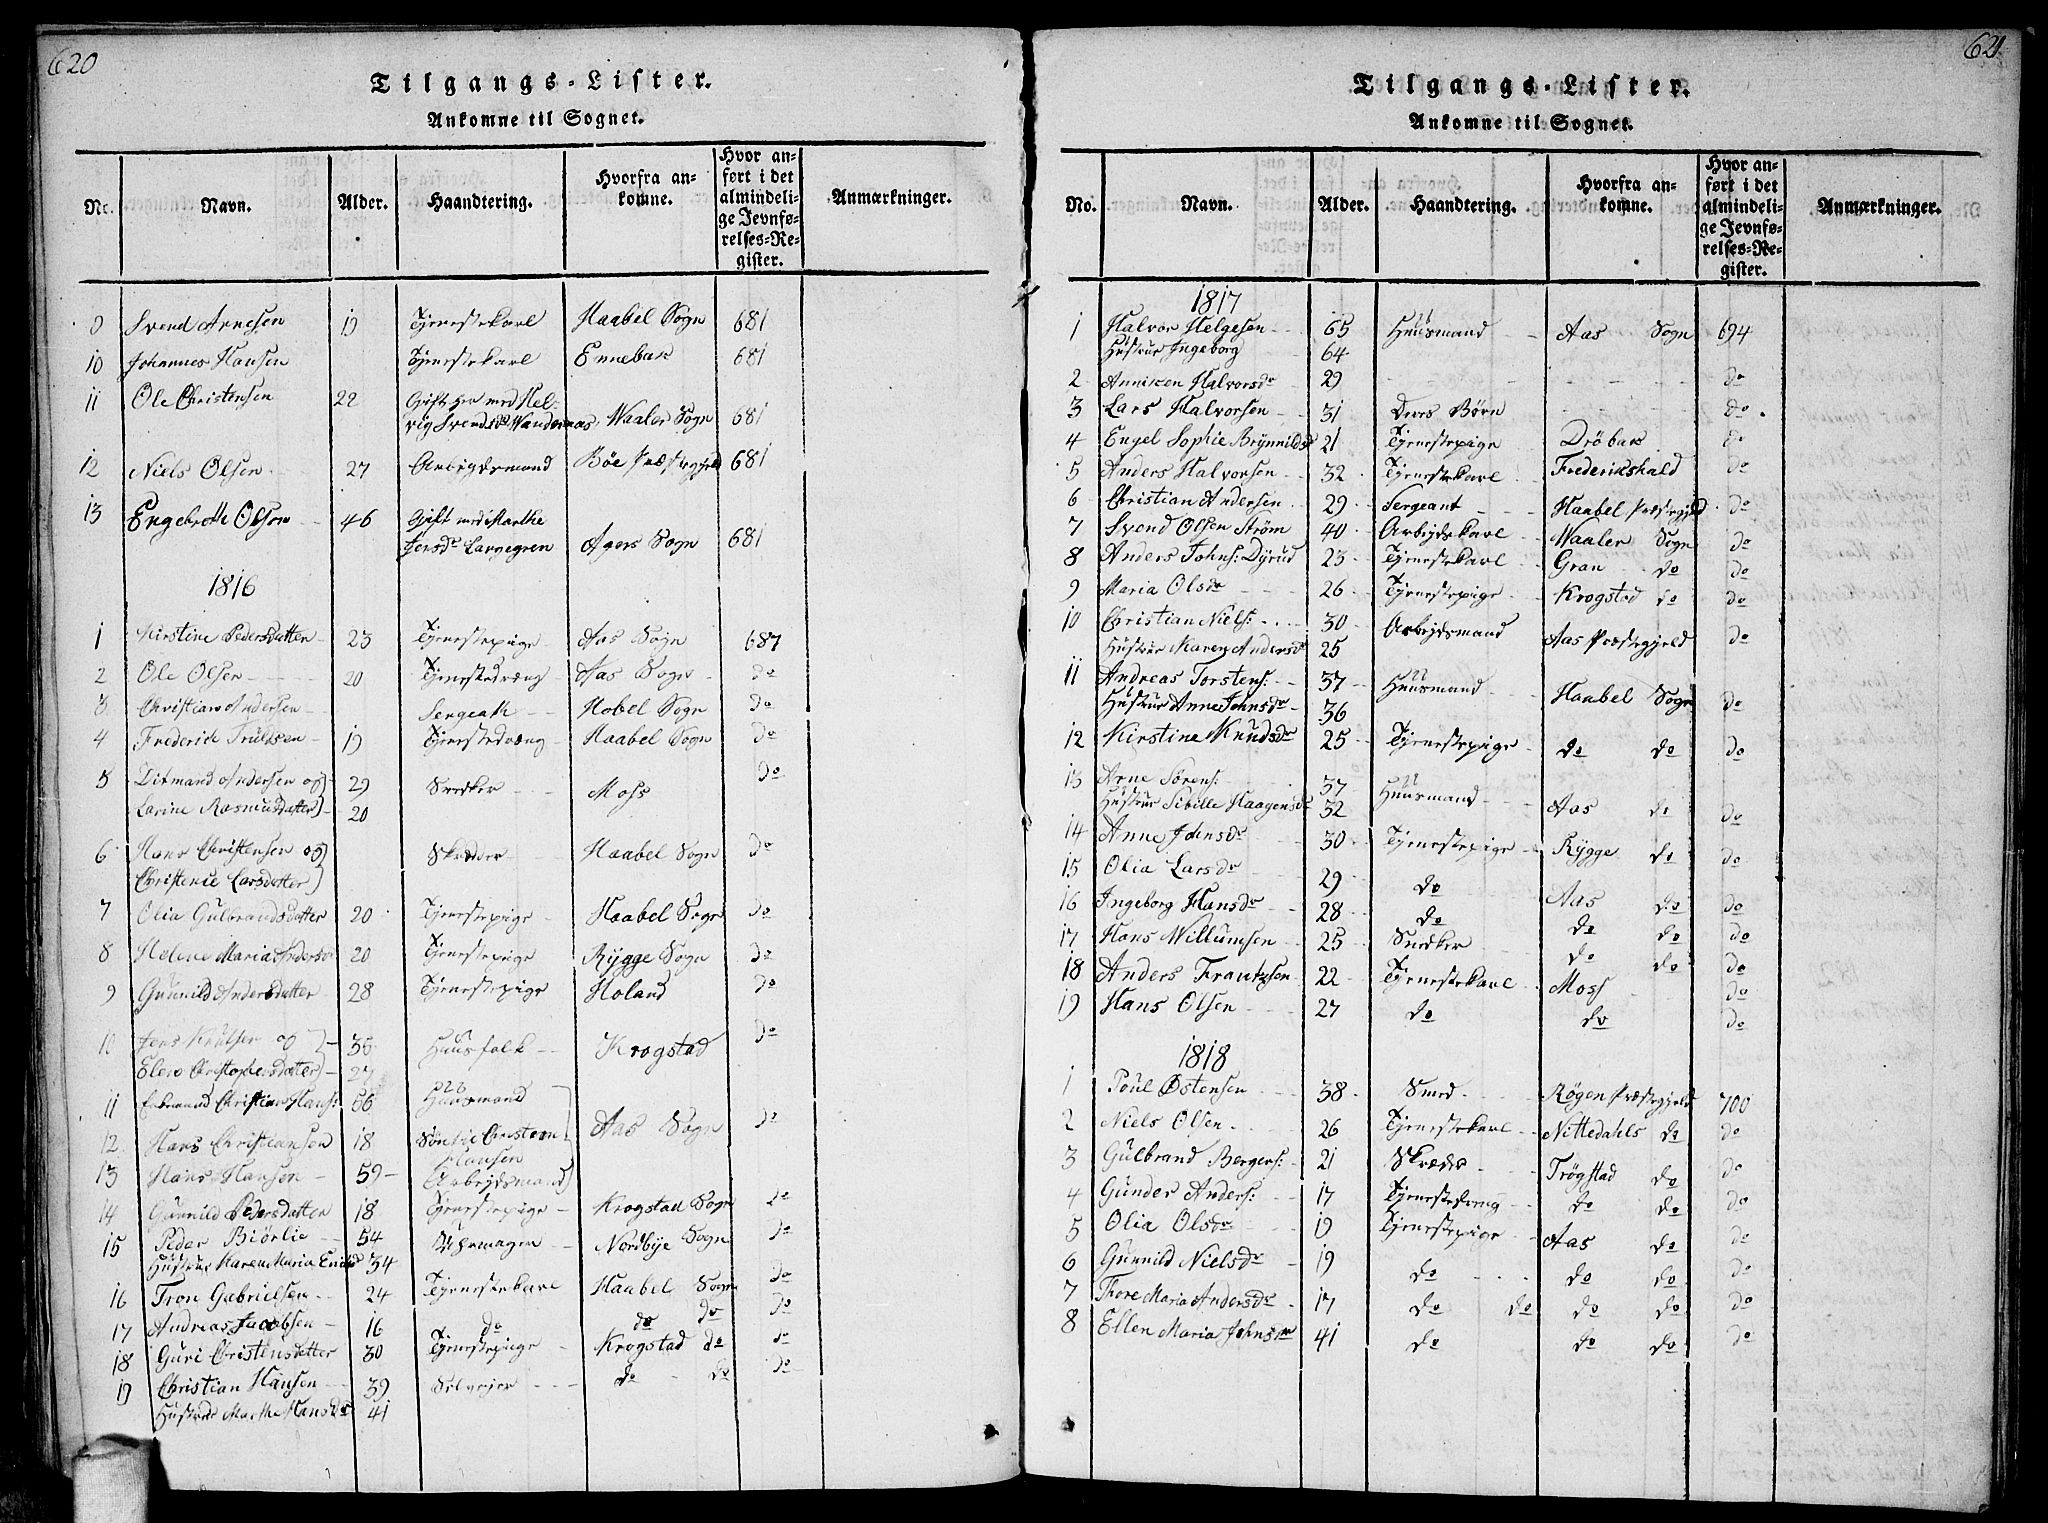 620
Tilgangs-Lister.
Ankomne til Sognet.
No. Navn. Alder. Haandtering. Hvorfra ankomne. Hvor anført i det almindelige Jevnførelses-Register. Anmærkninger.
9 Svend Arnesen 19 Tjenestekarl Haabel Sogn 681
10 Johannes Hansen Tjenestekarl Ennebak 681
11 Ole Christensen 22 Gift her med Hel-
vig Svendsdr Wandernæs Waaler Sogn 681
12 Niels Olsen 27 Arbejdsmand Böe Præstegjeld 681
13 Engebrett Olsen 46 Gift med Marthe
Jensdr Agers Sogn 681
1816
1 Kirstine Pedersdatter 23 Tjenestepige Aas Sogn 687
2 Ole Olsen 20 Tjenestedræng Aas Sogn do
3 Christian Andersen Sergeath Hobel Sogn do
4 Frederich Trulssen 19 Tjenestedræng Haabel Sogn do
5 Ditmand Andersen og 29 Snedker Moss do
Larine Rasmusdatter 20
6 Hans Christensen og Skredder Haabel Sogn do
Christenie Larsdatter
7 Olia Gulbrandsdatter 20 Tjenestepige Haabel Sogn do
8 Helene Maria Andersdr 20 Tjenestepige Rygge Sogn do
9 Gunnild Andersdatter 28 Tjenestepige Holand do
10 Jens Knutsen og 35 Huusfolk Krogstad do
Elen Christophersdatter 27
11 Christian Hans: 56 Huusmand
12 Hans Christiansen 18 Søn til Christian Hansen Aas Sogn do
13 Hans Hansen 59 Arbejdsmand
14 Gunnild Pedersdatter 18 Tjenestepige Krogstad Sogn do
15 Peder Biörlie 54 Uhrmager Nordbye Sogn do
Hustrue Karen Maria 34
16 Tron Gabrielsen 24 Tjenestekarl Haabel Sogn do
17 Andreas Jacobsen 16 do do do do
18 Guri Christensdatter 30 Tjenestepige Krogstad do do
19 Christian Hansen 39 Selvejer do do do
Hustrue Marthe Hansdr 41
621
Tilgangs-Lister.
Ankomne til Sognet.
No. Navn. Alder. Haandtering. Hvorfra ankomne. Hvor anført i det almindelige Jevnførelses-Register. Anmærkninger.
1817
1 Halvor Helgesen 65 Huusmand Aas Sogn 694
Hustrue Ingeborg 64
2 Anniken Halvorsdr 29 do
3 Lars Halvorsen 31 Deres Börn do
4 Engel Sophie Brynnildsdr 21 Tjenestepige Dröbak do
5 Anders Halvorsen 32 Tjenestekarl Frederikshald do
6 Christian Andersen 29 Sergeant Haabel Præstegjeld do
7 Svend Olsen Ström 40 Arbejdskarl Waaler Sogn do
8 Anders Johns: Dyrud 23 Tjenestekarl Gran do do
9 Maria Olsdr 26 Tjenestepige Krogstad do do
10 Christian Niels: 30 Arbejdsmand Aas Præstegjeld do
Hustrue Maren Andersdr 25
11 Andreas Torstens: 37 Huusmand Haabel Sogn do
Hustrue Anne Johnsdr 36
12 Kirstine Knudsdr 25 Tjenestepige do do do
13 Arne Sörens: 37 Huusmand Aas do do
Hustrue Sibille Haagensdr 32
14 Anne Johnsdr 30 Tjenestepige Rygge do do
15 Olia Larsdr 29 do Aas do do
16 Ingeborg Hansdr 28 do do do do
17 Hans Willumsen 25 Snedker do do do
18 Anders Frantzsen 22 Tjenestekarl Moss do
19 Hans Olsen 27 do do do
1818
1 Poul Østensen 38 Smed Røgen Præstegjeld 700
2 Niels Olsen 26 Tjenestekarl Nittedahls do do
3 Gulbrand Bergers: 21 Skræder Trøgstad do do
4 Gunder Anders: 17 Tjenestedreng do do do
5 Olia Olsdr 19 Tjenestepige Aas do do
6 Gunnild Nielsdr 19 do do do do
7 Thore Maria Andersdr 17 do do do do do
8 Ellen Maria Johnsdr 41 do do do do